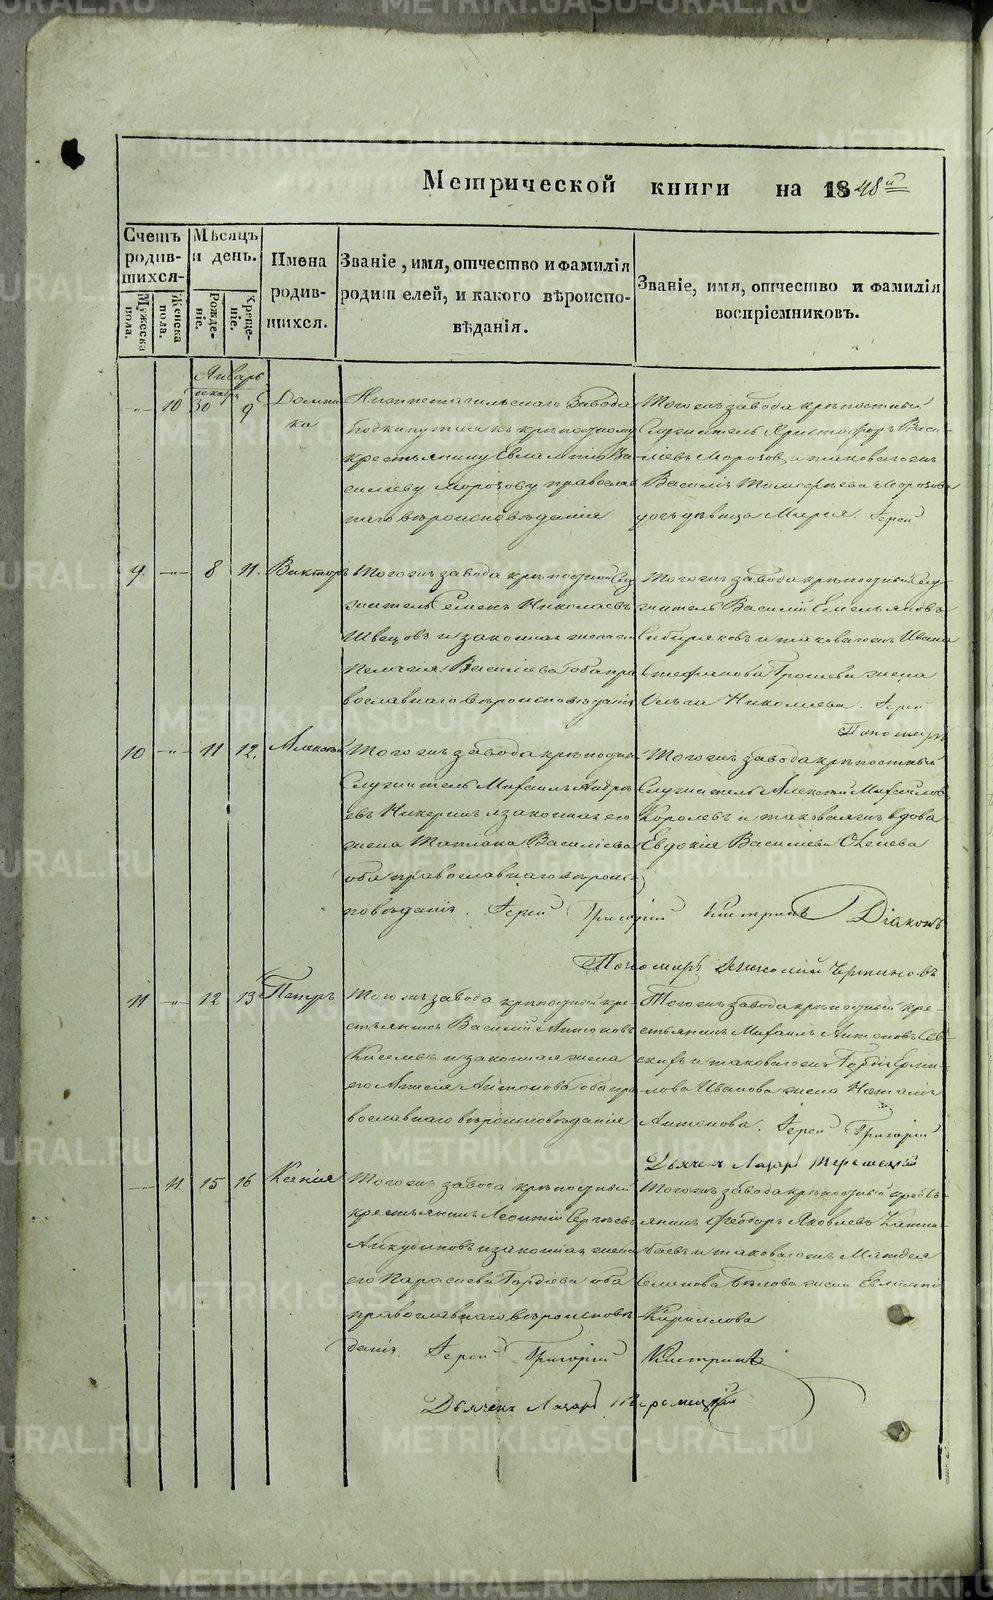 Метрической книги на 1848й
Счетъ родив-шихся.
Мѣсяцъ и день.
Имена родив-шихся.
Званіе, имя, отчество и фамилія родителей, и какого вѣроиспо-вѣданія.
Званіе, имя, отчество и фамилія воспріемниковъ.
Мужеска пола.
Женска пола.
Рожде-ніе.
Креще-ніе.
Январь
декабр
10 30 9 Домни-
ка
Нижнетагильскаго завода
подкинутая къ крѣпостному
крестьянину Евлампію Ва-
силіеву Морозову православ
наго вѣроисповѣданія
Тогожъ завода крѣпостный
Служитель Христофоръ Васи-
ліевъ Морозов и таковагожъ
Василія Тимофѣева Морозова
дочь дѣвица Марія. Іерей
9 8 11. Викторъ
Тогожъ завода крѣпостной Слу
житель Семенъ Николаевъ
Швецовъ и законная жена его
Пелагея Васильева оба пра
вославнаго вѣроисповѣданія
Тогожъ завода крѣпостный Слу-
житель Василій Емельяновъ
Сибиряковъ и таковагожъ Ивана
Стефанова жена
Ольга Николаева. Іерей
Пономарь
10 11 12. Алексѣй
Тогожъ завода крѣпостный
Служитель Михаилъ Андре
евъ и законная его
жена Татіана Василіева
оба православнаго вѣроис
повѣданія. Іерей Григорій
Тогожъ завода крѣпостный
Служитель Алексѣй Михайлов
Королевъ и таковаяжъ вдова
Евдокія Василіева
Діаконъ
Пономарь
11 12 13 Петръ
Тогожъ завода крѣпостный кре-
стьянинъ Василій Антоновъ
Киселевъ и законная жена
его Антонова оба пра
вославнаго вѣроисповѣданія
Тогожъ завода крѣпостный кре-
стьянинъ Михаилъ Антоновъ
и таковагожъ Гордія
Иванова жена Наталія
Антонова. Іерей Григорій
Дьячек Лазарь
11 15 16 Ксенія
Тогожъ завода крѣпостный
крестьянинъ Леонтій Сергѣевъ
Айкудиновъ и законная жена
его Параскева Гордіева оба
православнаго вѣроисповѣ
данія. Іерей Григорій
Тогожъ завода крѣпостный крестъ
янинъ Феодоръ Яковлевъ
и таковагожъ Матвея
Семенова Бѣлова жена Евлампія
Кириллова
Дьячекъ Лазарь
METRIKI.GASO-URAL.RU